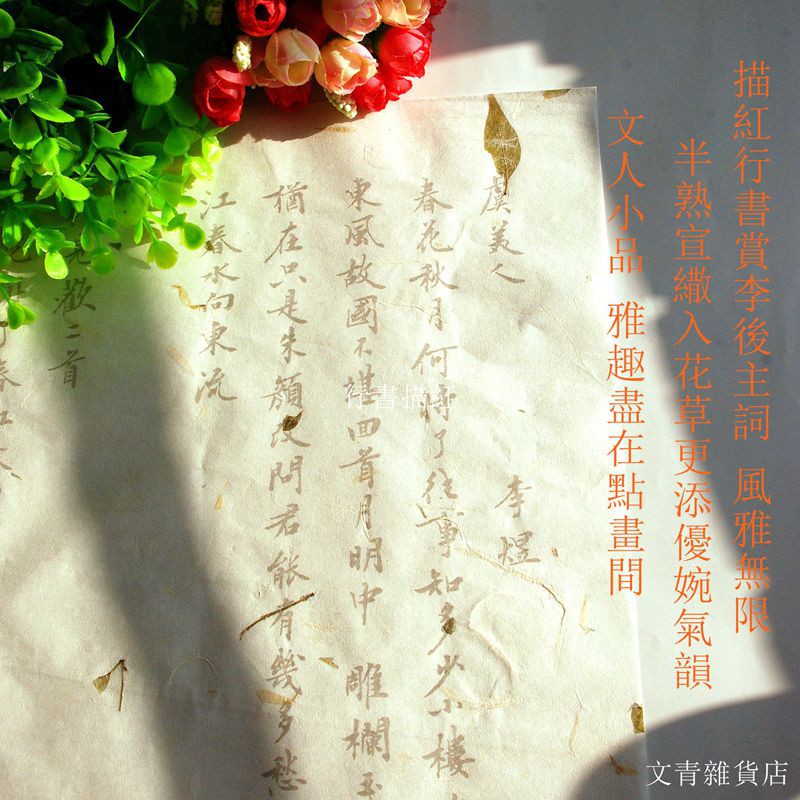 描紅行書賞李後主詞 風雅無限
半熟宣繖入花草更添優婉氣韻
文人小品 雅趣盡在點畫間
虞美人 李煜
春花秋月何時了往事知多少小樓
東風故國不堪回首月明中 雕欄玉
猶在只是朱顏改問君能有幾多愁
江春水向東流
歡二首
春江
行書描紅
文青雜貨店